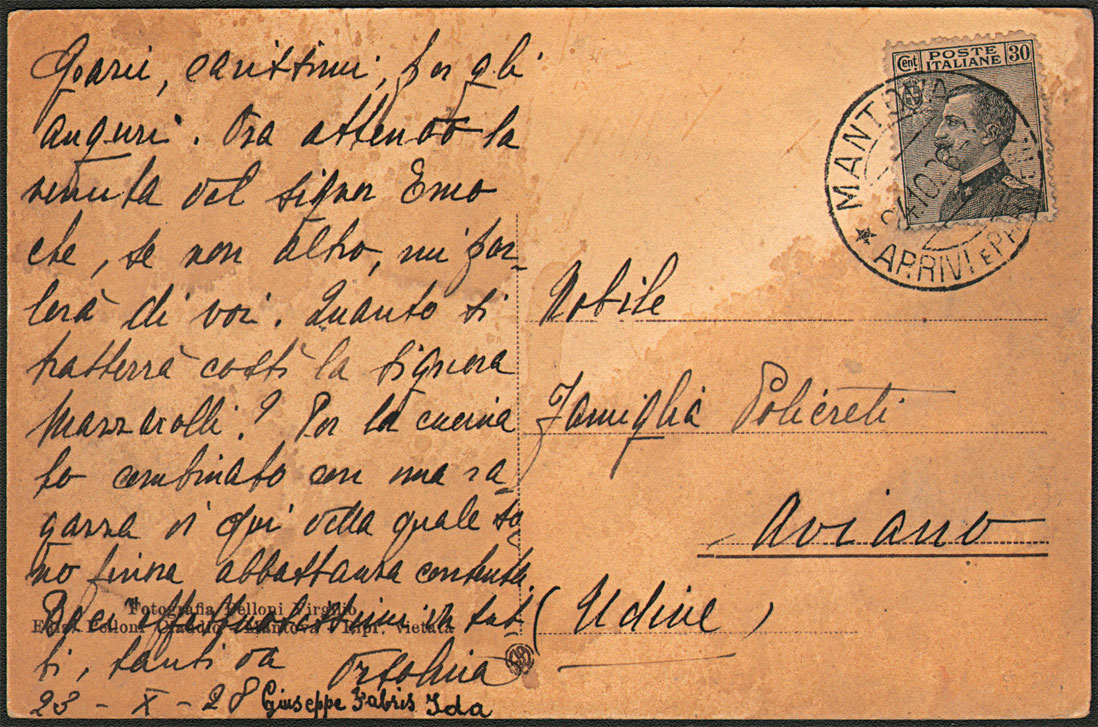 Grazie, carissimi, per gli
auguri. Ora attendo la
venuta del signor Emo
che, se non altro, mi par-
lerà di voi. Quanto si
tratterrà costì la signora
Mazzarolli? Per la cucina
ho combinato con una ra-
gazza di qui della quale so
no finora abbastanza contenta.
Baci affettuosissimi a tut
ti, tanti da Ortolina
23 - X - 28 Giuseppe Fabris Ida
Fotografia Pelloni Virginio
Pelloni Claudio - Mantova - Ripr. vietata
Cent. POSTE ITALIANE 30
MANTOVA
10.28
* ARRIVI E
Nobile
Famiglia Policreti
Aviano
(Udine)